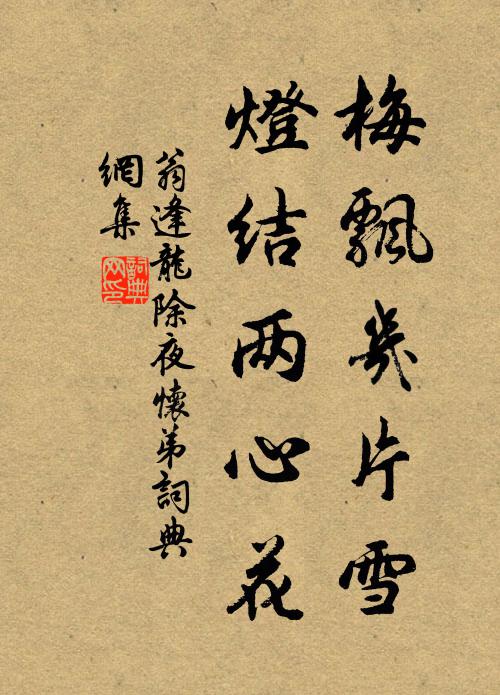 梅飄幾片雪
燈結兩心花
翁逢龍除夜懷弟詞典
網集
詞典
网印